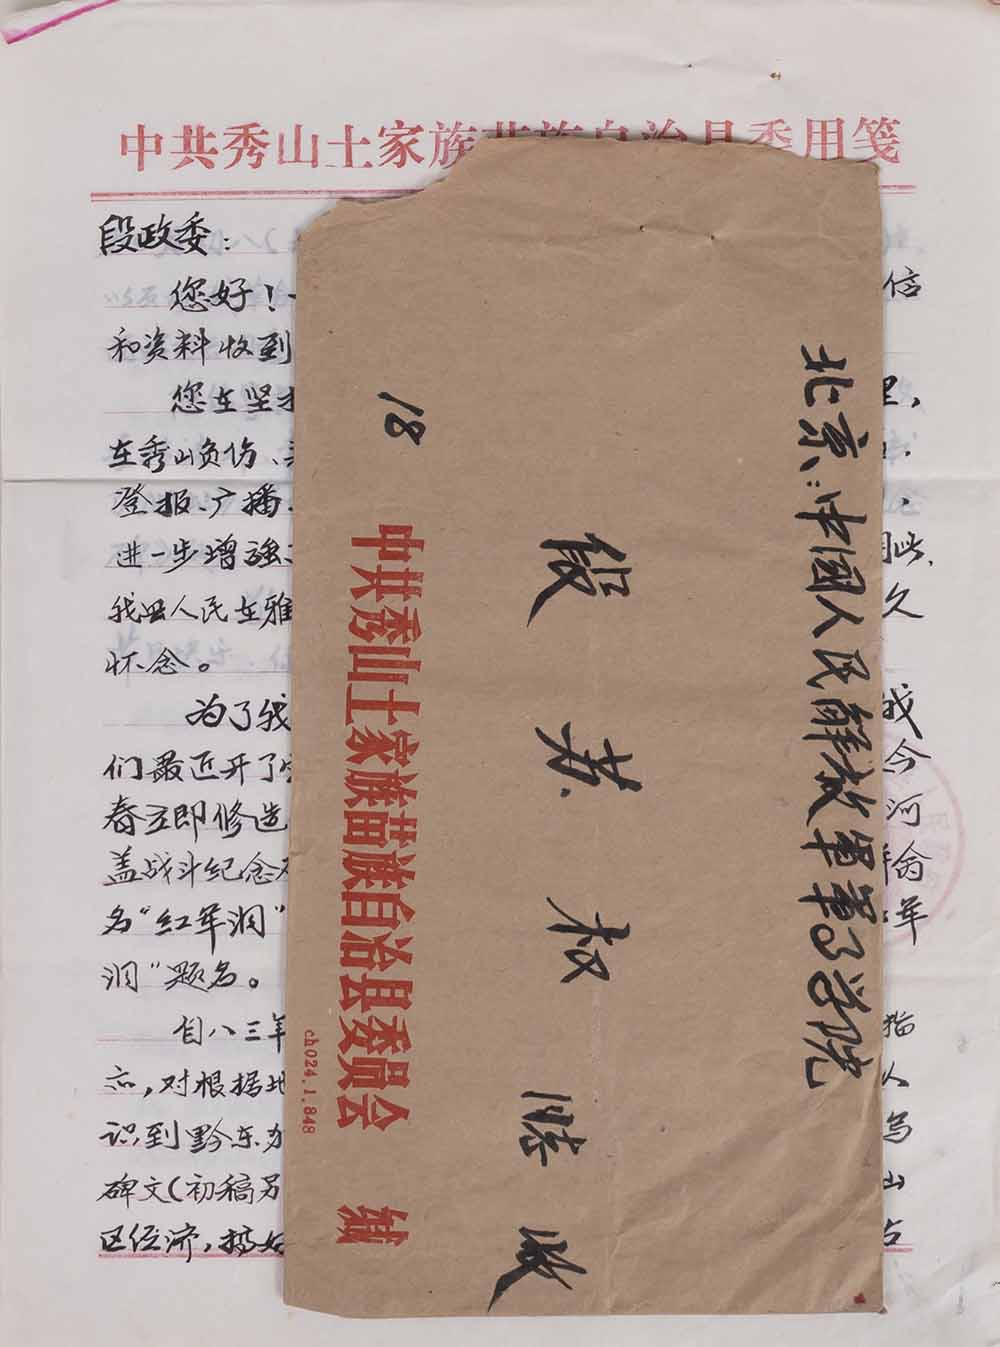 中共秀山土家族苗族自治县委用笺
段政委：
您好！
信
和资料收到
您在坚
里，
在秀山负伤、
登报、广播、
进一步增强
因此，
我县人民在雅
久
怀念。
为了我
我
们最近开了
今
春立即修造
河
盖战斗纪念
命
名“红军洞”
军
洞”题名。
自八三年
指
示，对根据地
认
识到黔东
写
碑文（初稿另
山
区经济，搞好
占
北京：中國人民解放军军事学院
18
段苏权
收
中共秀山土家族苗族自治县委员会 缄
ch024.1.848